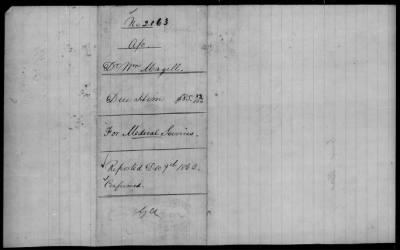 No 2163
a/c
Dr Wm Magill.
Due Him
For Medical Services.
Reported Dec 9th 1862.
Confirmed.